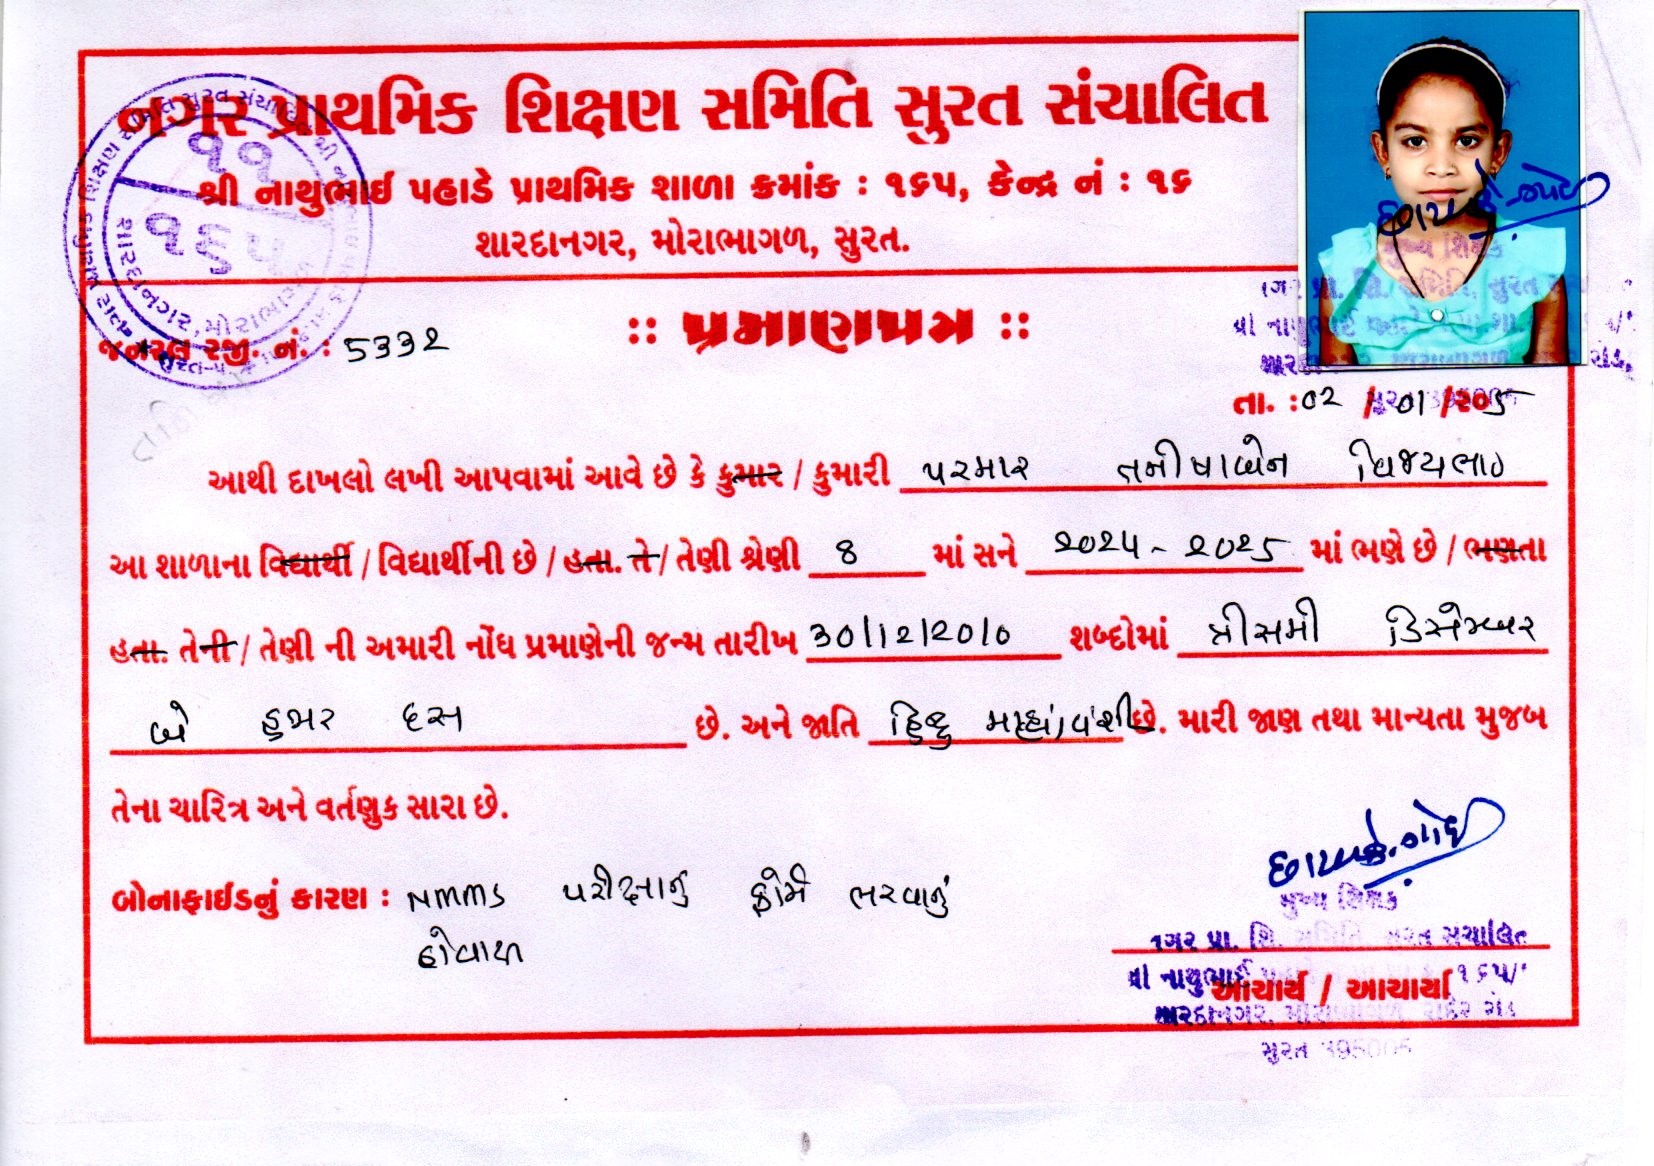 નગર પ્રાથમિક શિક્ષણ સમિતિ સુરત સંચાલિત
શ્રી નાથુભાઈ પહાડે પ્રાથમિક શાળા ક્રમાંક : ૧૬૫, કેન્દ્ર નં : ૧૬
શારદાનગર, મોરાભાગળ, સુરત.
૧૧
૧૬૫
:: પ્રમાણપત્ર ::
જનરલ રજી. નં. : 5332
તા. : 02 / 01 / ૨૦૨5
આથી દાખલો લખી આપવામાં આવે છે કે કુમાર / કુમારી પરમાર તનીષાબેન વિજયભાઈ
આ શાળાના વિદ્યાર્થી / વિદ્યાર્થીની છે / હતા. તે / તેણી શ્રેણી 8 માં સને 2024 - 2025 માં ભણે છે / ભણતા
હતા. તેની / તેણી ની અમારી નોંધ પ્રમાણેની જન્મ તારીખ 30/12/2010 શબ્દોમાં ત્રીસમી ડિસેમ્બર
બે હજાર દસ છે. અને જાતિ હિન્દુ મહાવંશી છે. મારી જાણ તથા માન્યતા મુજબ
તેના ચારિત્ર અને વર્તણુક સારા છે.
બોનાફાઈડનું કારણ : NMMS પરીક્ષાનુ ફોર્મ ભરવાનું
હોવાથી
મુખ્ય શિક્ષક
નગર પ્રા. શિ. સમિતિ, સુરત સંચાલિત
શ્રી નાથુભાઈ ૧૬૫
આચાર્ય / આચાર્યા
શારદાનગર, મોરાભાગળ, રાંદેર રોડ
સુરત 395005